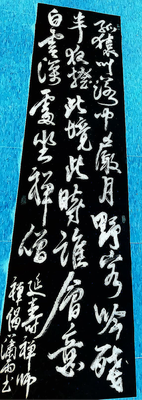 孤猿叫落中巖月野客吟殘
半夜燈此境此時誰會意
白雲深處坐禪僧
延壽禪師
偈